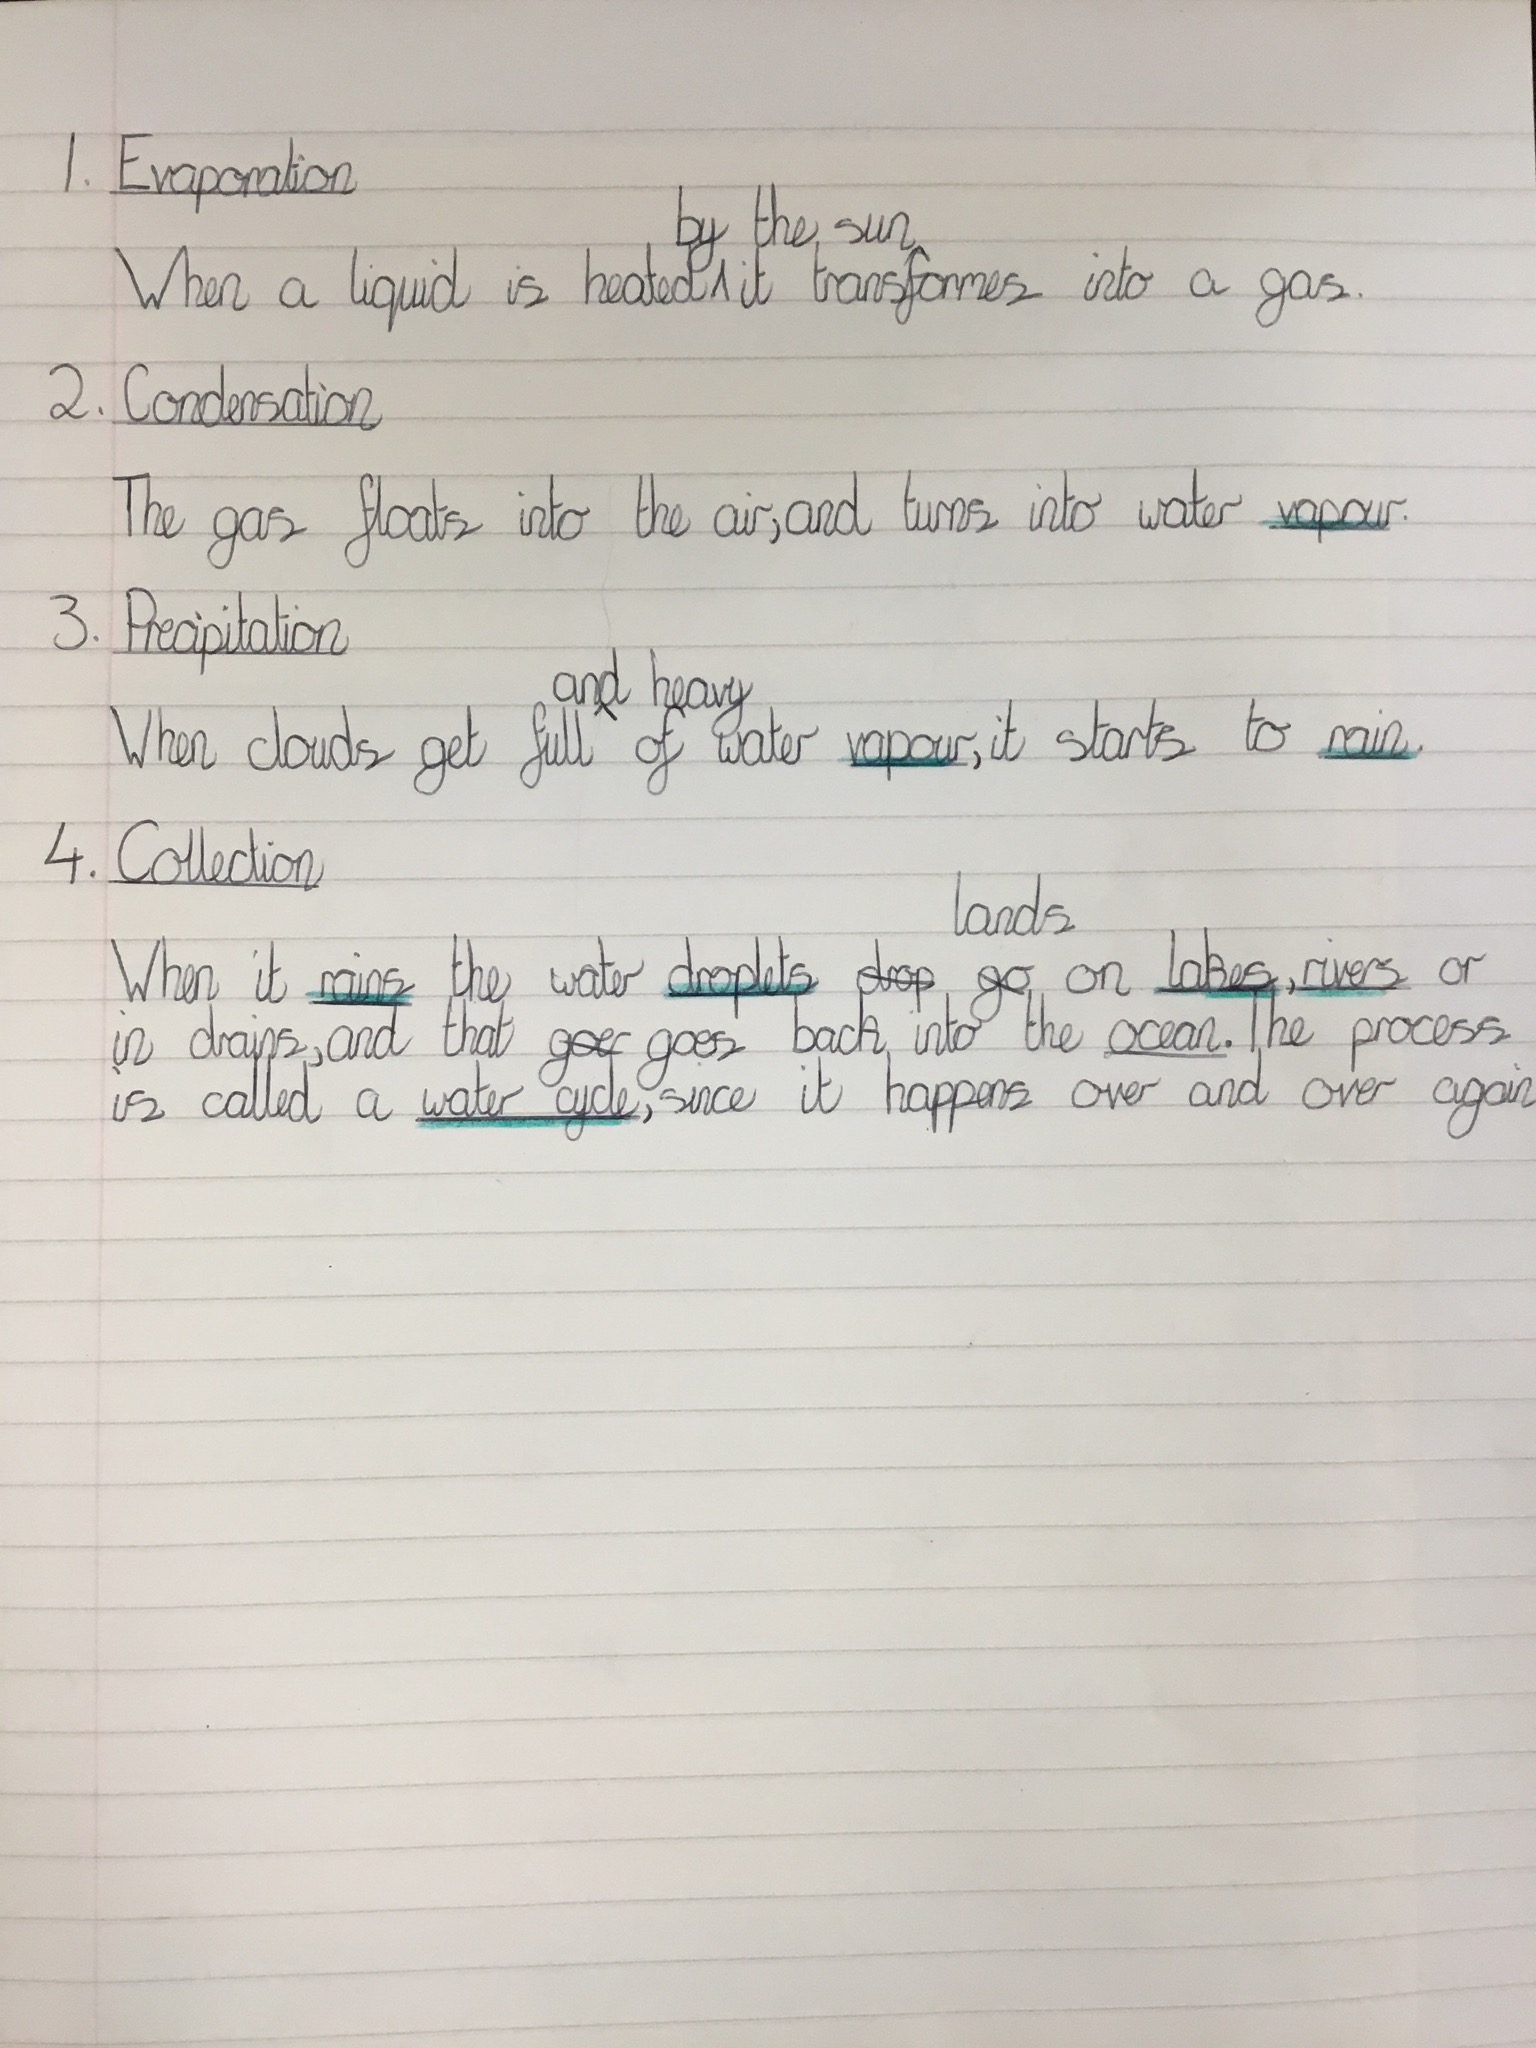 1. Evaporation
by the sun
When a liquid is heated ^ it transformes into a gas.
2. Condensation
The gas floats into the air, and turns into water vapour.
3. Precipitation
and heavy
When clouds get full ^ of water vapour, it starts to rain.
4. Collection
lands
When it rains the water droplets drop go on lakes, rivers or
in drains, and that goer goes back into the ocean. The process
is called a water cycle, since it happens over and over again